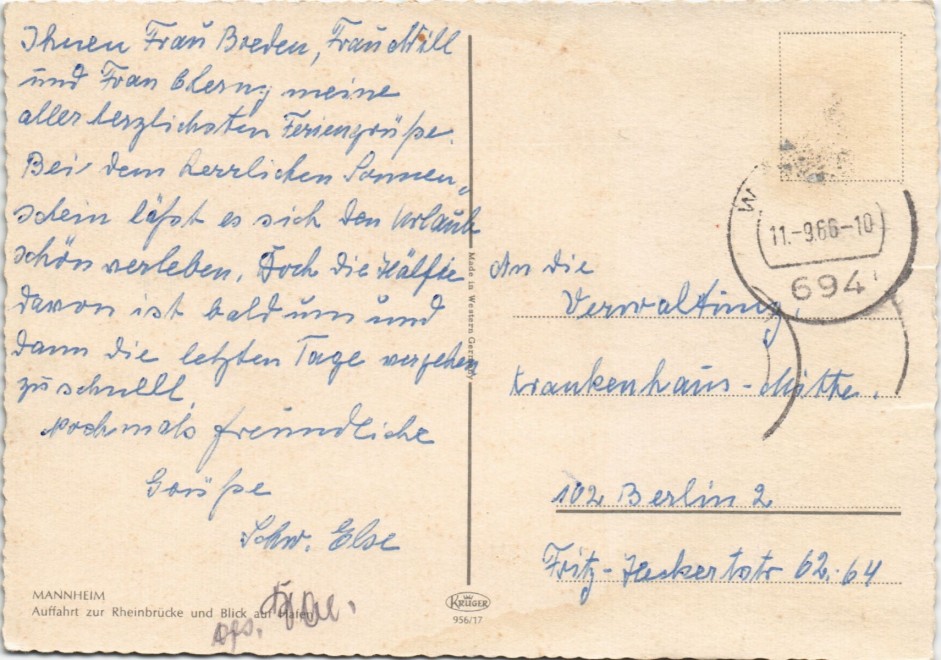 Ihnen Frau Breden, Frau Mill
und Frau meine
allerherzlichsten Feriengrüße.
Bei dem herrlichen Sonnen-
schein läßt es sich den Urlaub
schön verleben. Doch die Hälfte
davon ist bald um und
dann die letzten Tage vergehen
zu schnell.
Nochmals freundliche
Grüße
Schw. Else
MANNHEIM
Auffahrt zur Rheinbrücke und Blick auf Hafen
Made in Western Germany
KRÜGER
956/17
11.-9.66-10
694
An die
Verwaltung,
Krankenhaus-Mitte.
102 Berlin 2
Fritz-Heckertstr 62-64